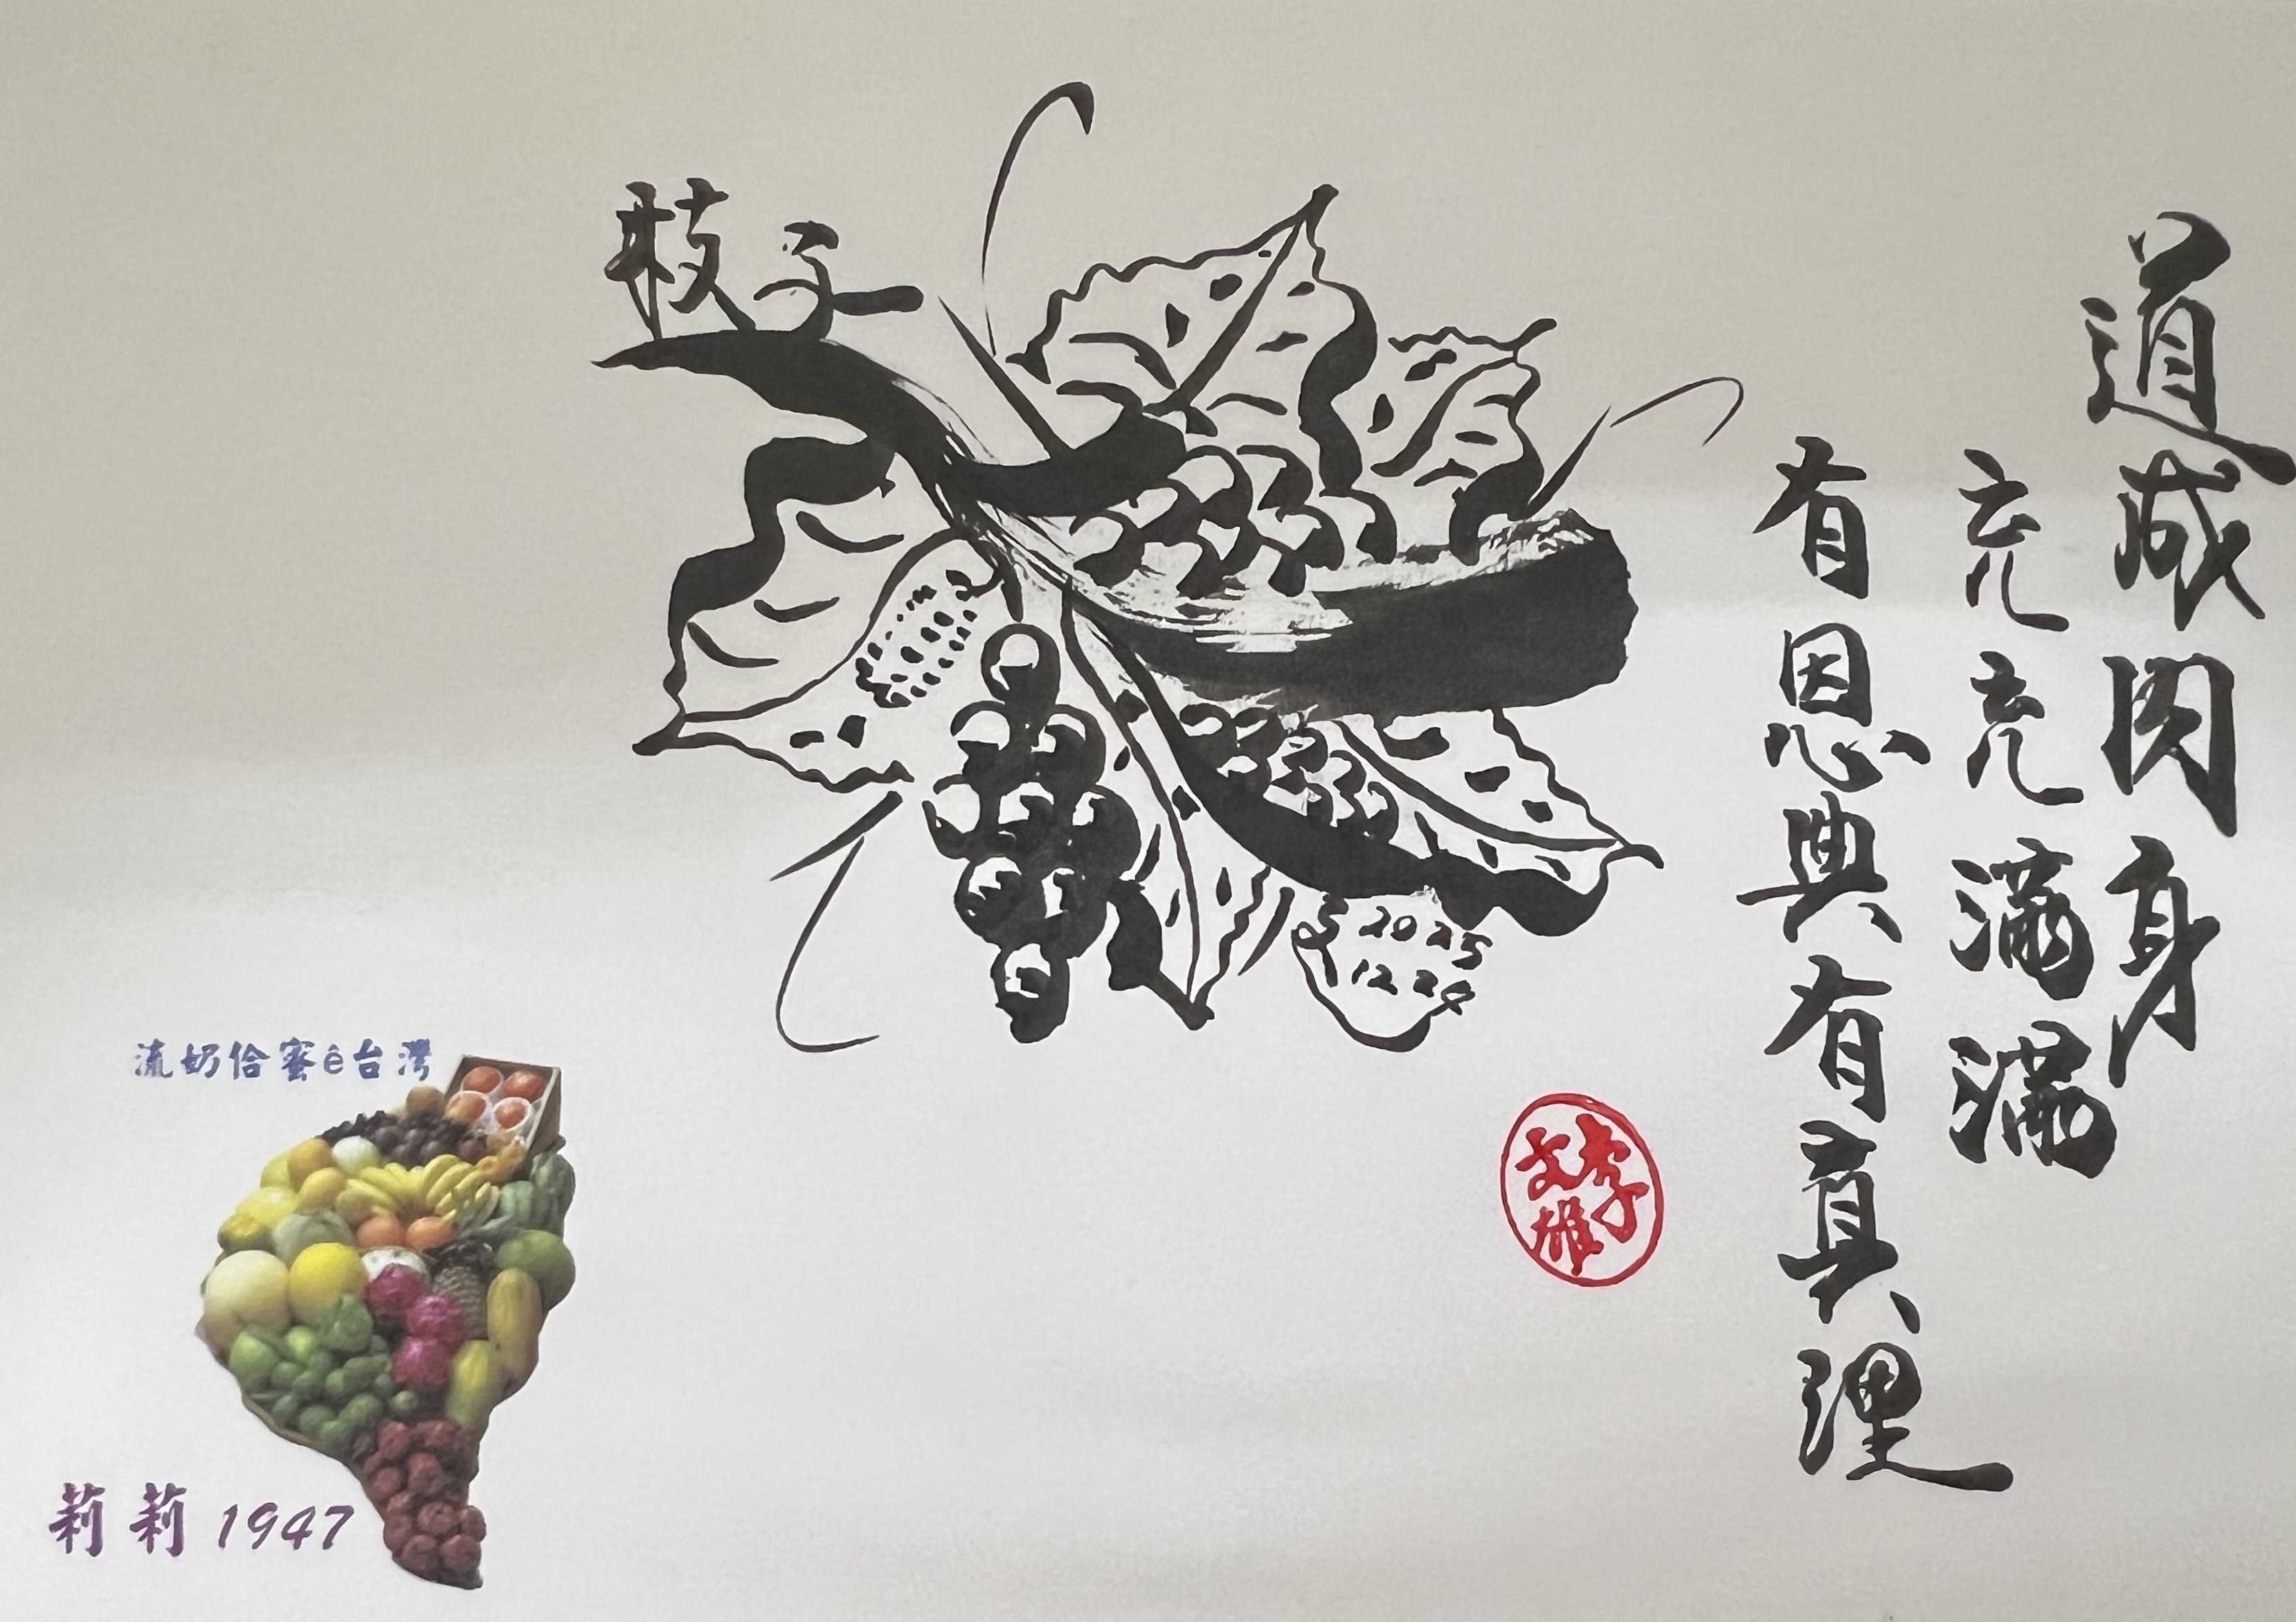 道成肉身
充充滿滿
有恩典有真理
枝子
2025
12 29
李文雄
流奶佮蜜ê台灣
莉莉1947